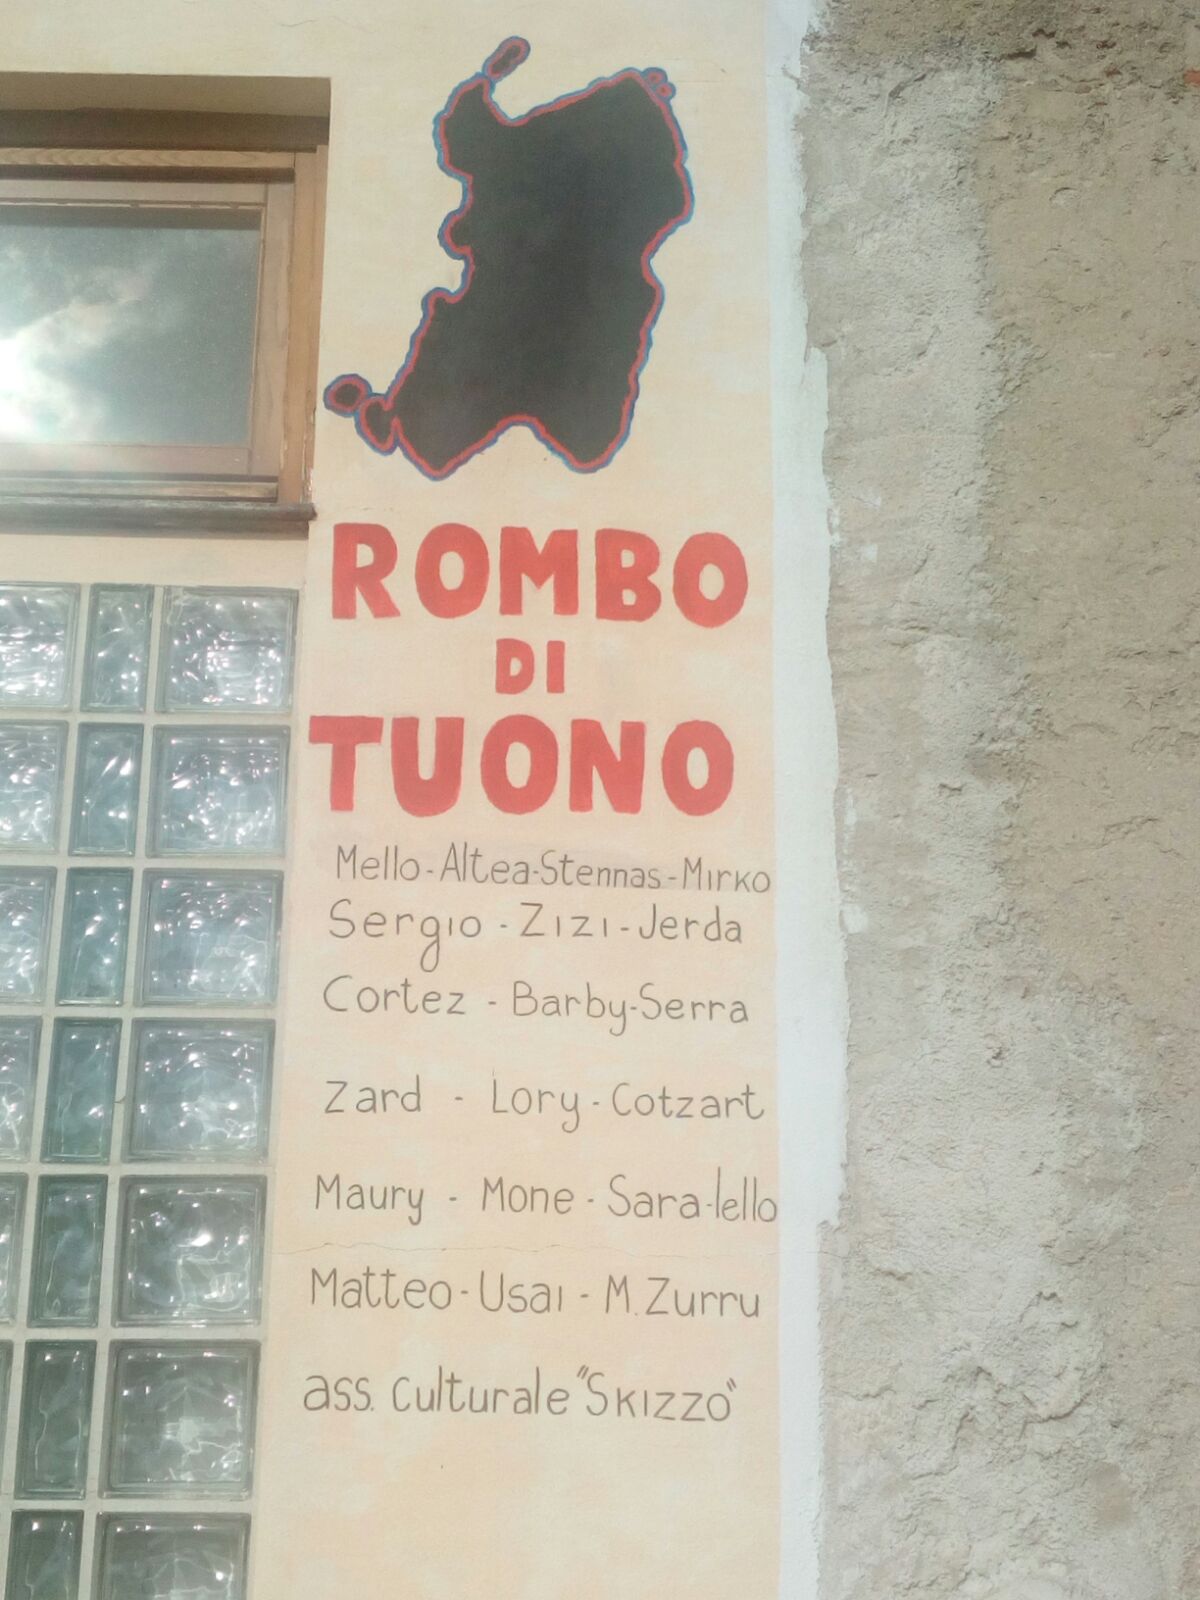 ROMBO
DI
TUONO
Mello-Altea-Stennas-Mirko
Sergio - Zizi-Jerda
Cortez - Barby-Serra
Zard - Lory-Cotzart
Maury - Mone-Sara-lello
Matteo-Usai - M.Zurru
ass. culturale "SKIZZO"